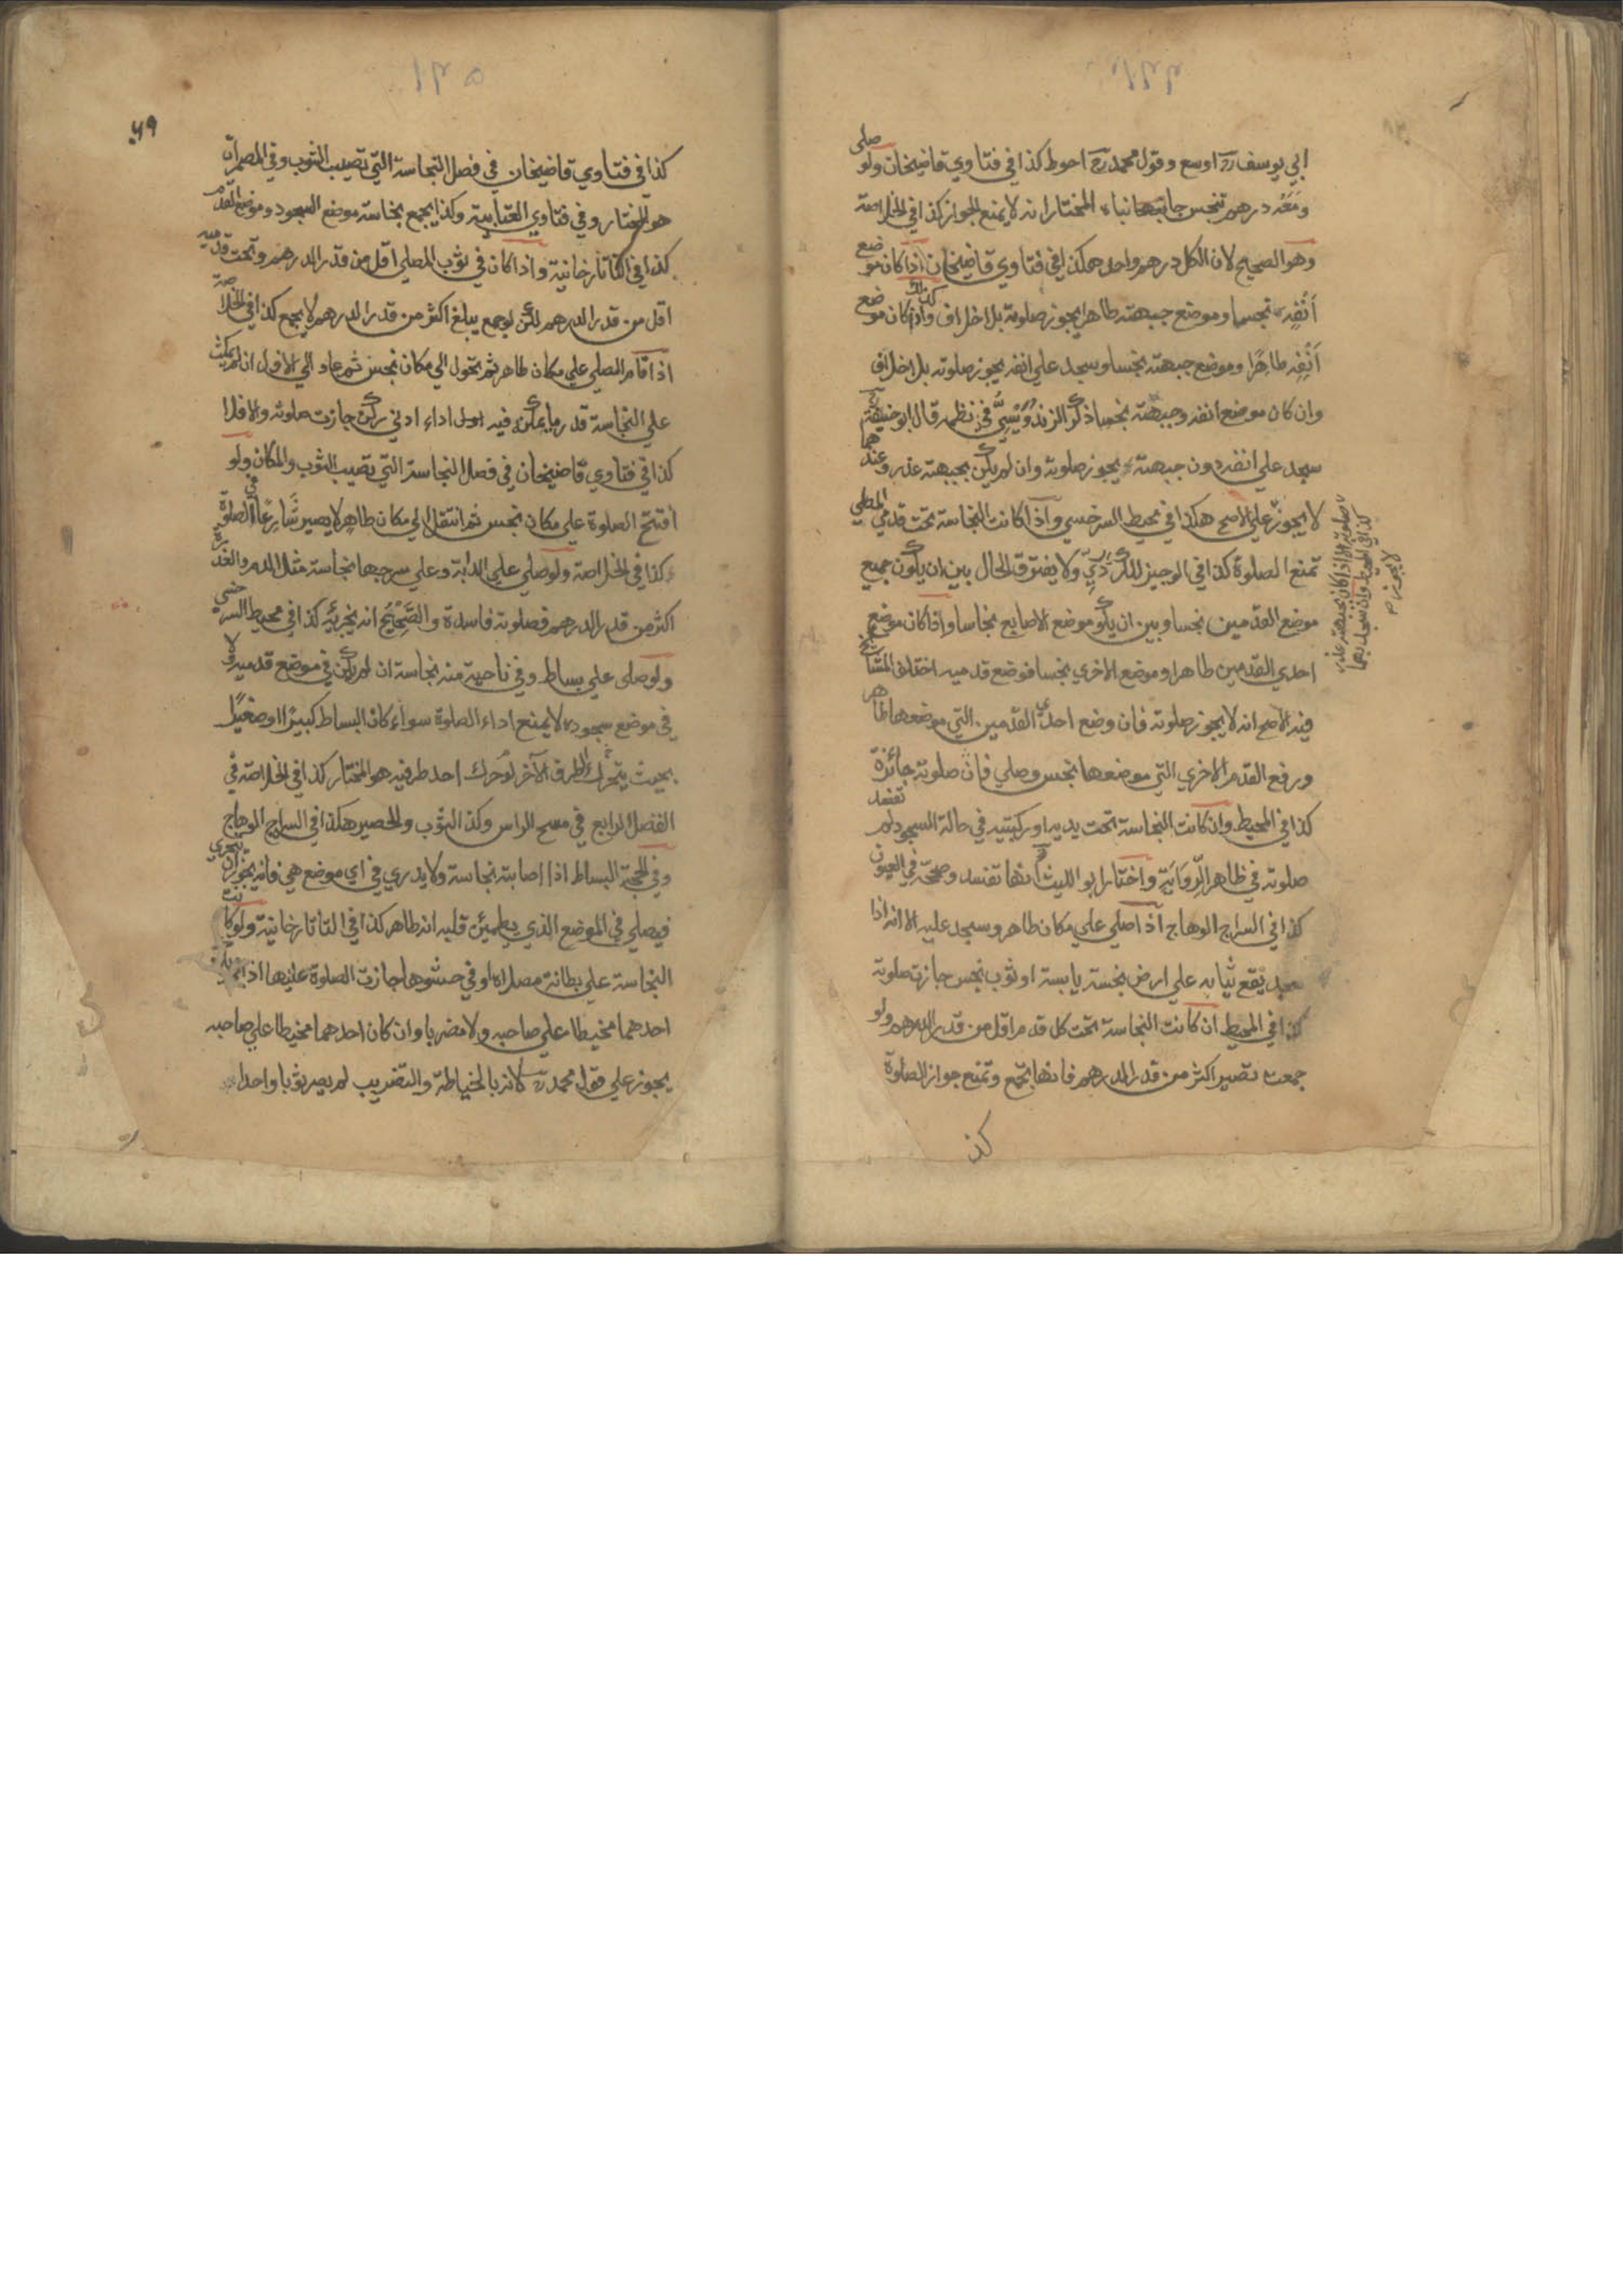 ابي يوسف رح اوسع وقول محمد رح احوط كذا في فتاوي قاضيخان ولو صلى
ومعه درهم تنجس جانبها نباء المختار انه لا يمنع الجواز كذا في الخلاصة
وهو الصحيح لان الكل درهم واحد هكذا في فتاوي قاضيخان اذا كان موضع
انفه نجسا وموضع جبهته طاهرا يجوز صلوته بلا خلاف وكذلك اذا كان موضع
انفه طاهرا وموضع جبهته نجسا وسجد علي انفه يجوز صلوته بلا خلاف
وان كان موضع انفه وجبهته نجسا ذكر الزندويسي في نظمه قال ابو حنيفة رح
سجد علي انفه دون جبهته يجوز صلوته وان لم يكن بجبهته عذر وعندهما
لا يجوز علي الاصح هكذا في محيط السرخسي واذا كانت النجاسة تحت قدمي المصلي
تمنع الصلوة كذا في الوجيز للكردري ولا يفترق الحال بين ان يكون جميع
موضع القدمين نجسا وبين ان يكون موضع الاصابع نجاسا واذا كان موضع
احدي القدمين طاهرا وموضع الاخري نجسا فوضع قدميه اختلف المشايخ
فيه الاصح انه لا يجوز صلوته فان وضع احدي القدمين التي موضعها طاهر
ورفع القدم الاخري التي موضعها نجس وصلي فان صلوته جائزة
كذا في المحيط وان كانت النجاسة تحت يديه او ركبتيه في حالة السجود لم تفسد
صلوته في ظاهر الرواية واختار ابو الليث انها تفسد وصححه في العيون
كذا في السراج الوهاج اذا صلي علي مكان طاهر وسجد عليه الا انه اذا
سجد يقع ثيابه علي ارض نجسة يابسة او ثوب نجس جازت صلوته
كذا في المحيط ان كانت النجاسة تحت كل قدم اقل من قدر الدرهم ولو
جمعت تصير اكثر من قدر الدرهم فانها تجمع وتمنع جواز الصلوة
كذ
لا صلوته الا اذا كان بجبهته عذر
كذا في المحيط وان سجد بهما
لا يجوز صح
٥٩
كذا في فتاوي قاضيخان في فصل النجاسة التي تصيب الثوب وفي المضمرات
هو المختار وفي فتاوي العتابية وكذا يجمع نجاسة موضع السجود وموضع القدم
كذا في التاتارخانية واذا كان في ثوب المصلي اقل من قدر الدرهم وتحت قدميه
اقل من قدر الدرهم لكن لو جمع يبلغ اكثر من قدر الدرهم لا يجمع كذا في الخلاصة
اذا قام المصلي علي مكان طاهر ثم تحول الي مكان نجس ثم عاد الي الاول ان لم يمكث
علي النجاسة قدر ما يمكن فيه اداء ادني ركن جازت صلوته والا فلا
كذا في فتاوي قاضيخان في فصل النجاسة التي تصيب الثوب والمكان ولو
افتتح الصلوة علي مكان نجس ثم انتقل الي مكان طاهر لا يصير شارعا في الصلوة
كذا في الخلاصة ولو صلي علي الدابة وعلي سرجها نجاسة مثل الدم والعذرة
اكثر من قدر الدرهم فصلوته فاسدة والصحيح انه يجزئه كذا في محيط السرخسي
ولو صلي علي بساط وفي ناحية منه نجاسة ان لم يكن في موضع قدميه ولا
في موضع سجوده لا يمنع اداء الصلوة سواء كان البساط كبيرا او صغيرا
بحيث يتحرك الطرف الآخر لو حرك احد طرفيه هو المختار كذا في الخلاصة في
الفصل الرابع في مسح الراس وكذا الثوب والحصير هكذا في السراج الوهاج
وفي الحجة البساط اذا اصابته نجاسة ولا يدري في اي موضع هي فانه يجوز ان يتحري
فيصلي في الموضع الذي يطمئن قلبه انه طاهر كذا في التاتارخانية ولو كانت
النجاسة علي بطانة مصلاه او في حشوها جازت الصلوة عليها اذا لم يكن
احدهما مخيطا علي صاحبه ولا مضربا وان كان احدهما مخيطا علي صاحبه
يجوز علي قول محمد رح لانه بالخياطة والتضريب لم يصر ثوبا واحدا